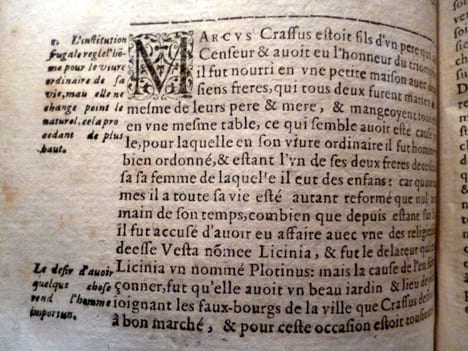 1. L'institution
frugale regle l'hô-
me pour le viure
ordinaire de sa
vie, mais elle ne
change point le
naturel, cela pro-
cedant de plus
haut.
MARCVS Crassus estoit fils d'vn pere qui a
Censeur & auoit eu l'honneur du trio
il fut nourri en vne petite maison auec de
siens freres, qui tous deux furent mariez
mesme de leurs pere & mere, & mangeoyent tous
en vne mesme table, ce qui semble auoir esté cause
le, pour laquelle en son viure ordinaire il fut hom
bien ordonné, & estant l'vn de ses deux freres deced
sa sa femme de laquelle il eut des enfans: car quan
mes il a toute sa vie esté autant reformé que nul
main de son temps, combien que depuis estant sur
il fut accusé d'auoir eu affaire auec vne des religieu
deesse Vesta nõmee Licinia, & fut le delateur qui
Licinia vn nommé Plotinus: mais la cause de l'en
çonner, fut qu'elle auoit vn beau iardin & lieu de p
ioignant les faux-bourgs de la ville que Crassus desi
à bon marché, & pour ceste occasion estoit tousiour
Le desir d'auoir
quelque chose
rend l'homme
importun.